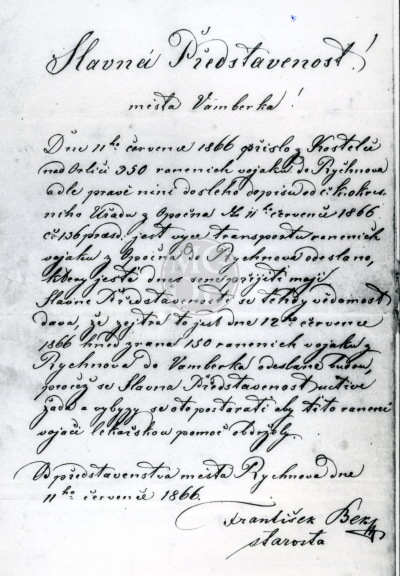 Slavná Představenost!
města Vamberka!
Dne 11ho července 1866 přišlo z Kostelce
nad Orlicí 350 raneních vojáků do Rychnova
a dle pravě nini došlého dopisu od čk. okres-
ního Úřadu z Opočna 11ho července 1866
č 136 praes. jest více transportu raneních
vojáku z Opočna do Rychnova odesláno,
ktery ještě dnes sem přijíti mají
Slavné Představenosti se tehdy vědomost
dává, že zejtra to jest dne 12ho července
1866 hned z rána 150 raneních vojáku z
Rychnova do Vamberka odeslané budou,
pročež se Slavna Představenost uctivě
žádá a vybyzy se oto postarati aby tito ranení
vojáci lékařskou pomoč obdržely.
Od představenstva města Rychnova dne
11ho července 1866.
František Bek
starosta